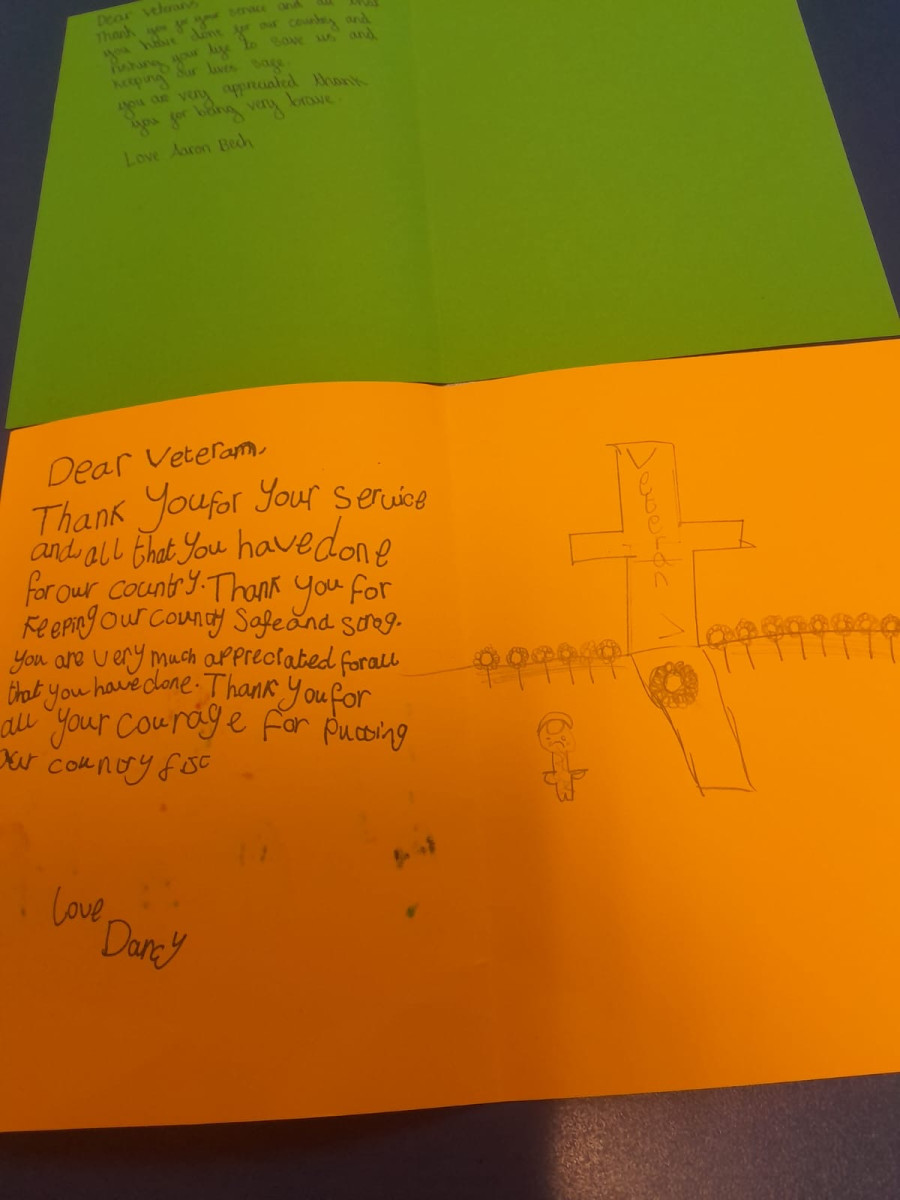 Dear veterans
thank you for your service and all that
you have done for our country and
risking your life to save us and
keeping our lives safe
you are very appreciated thank
you for being very brave.
Love Aaron Bech
Dear Veteram,
Thank You for Your Service
and all that You have done
for our country. Thank You for
keeping our county Safe and srong.
You are very much appreciated for all
that you have done. Thank You for
all Your courage for putting
our country fist
Love
Darcy
Veteran